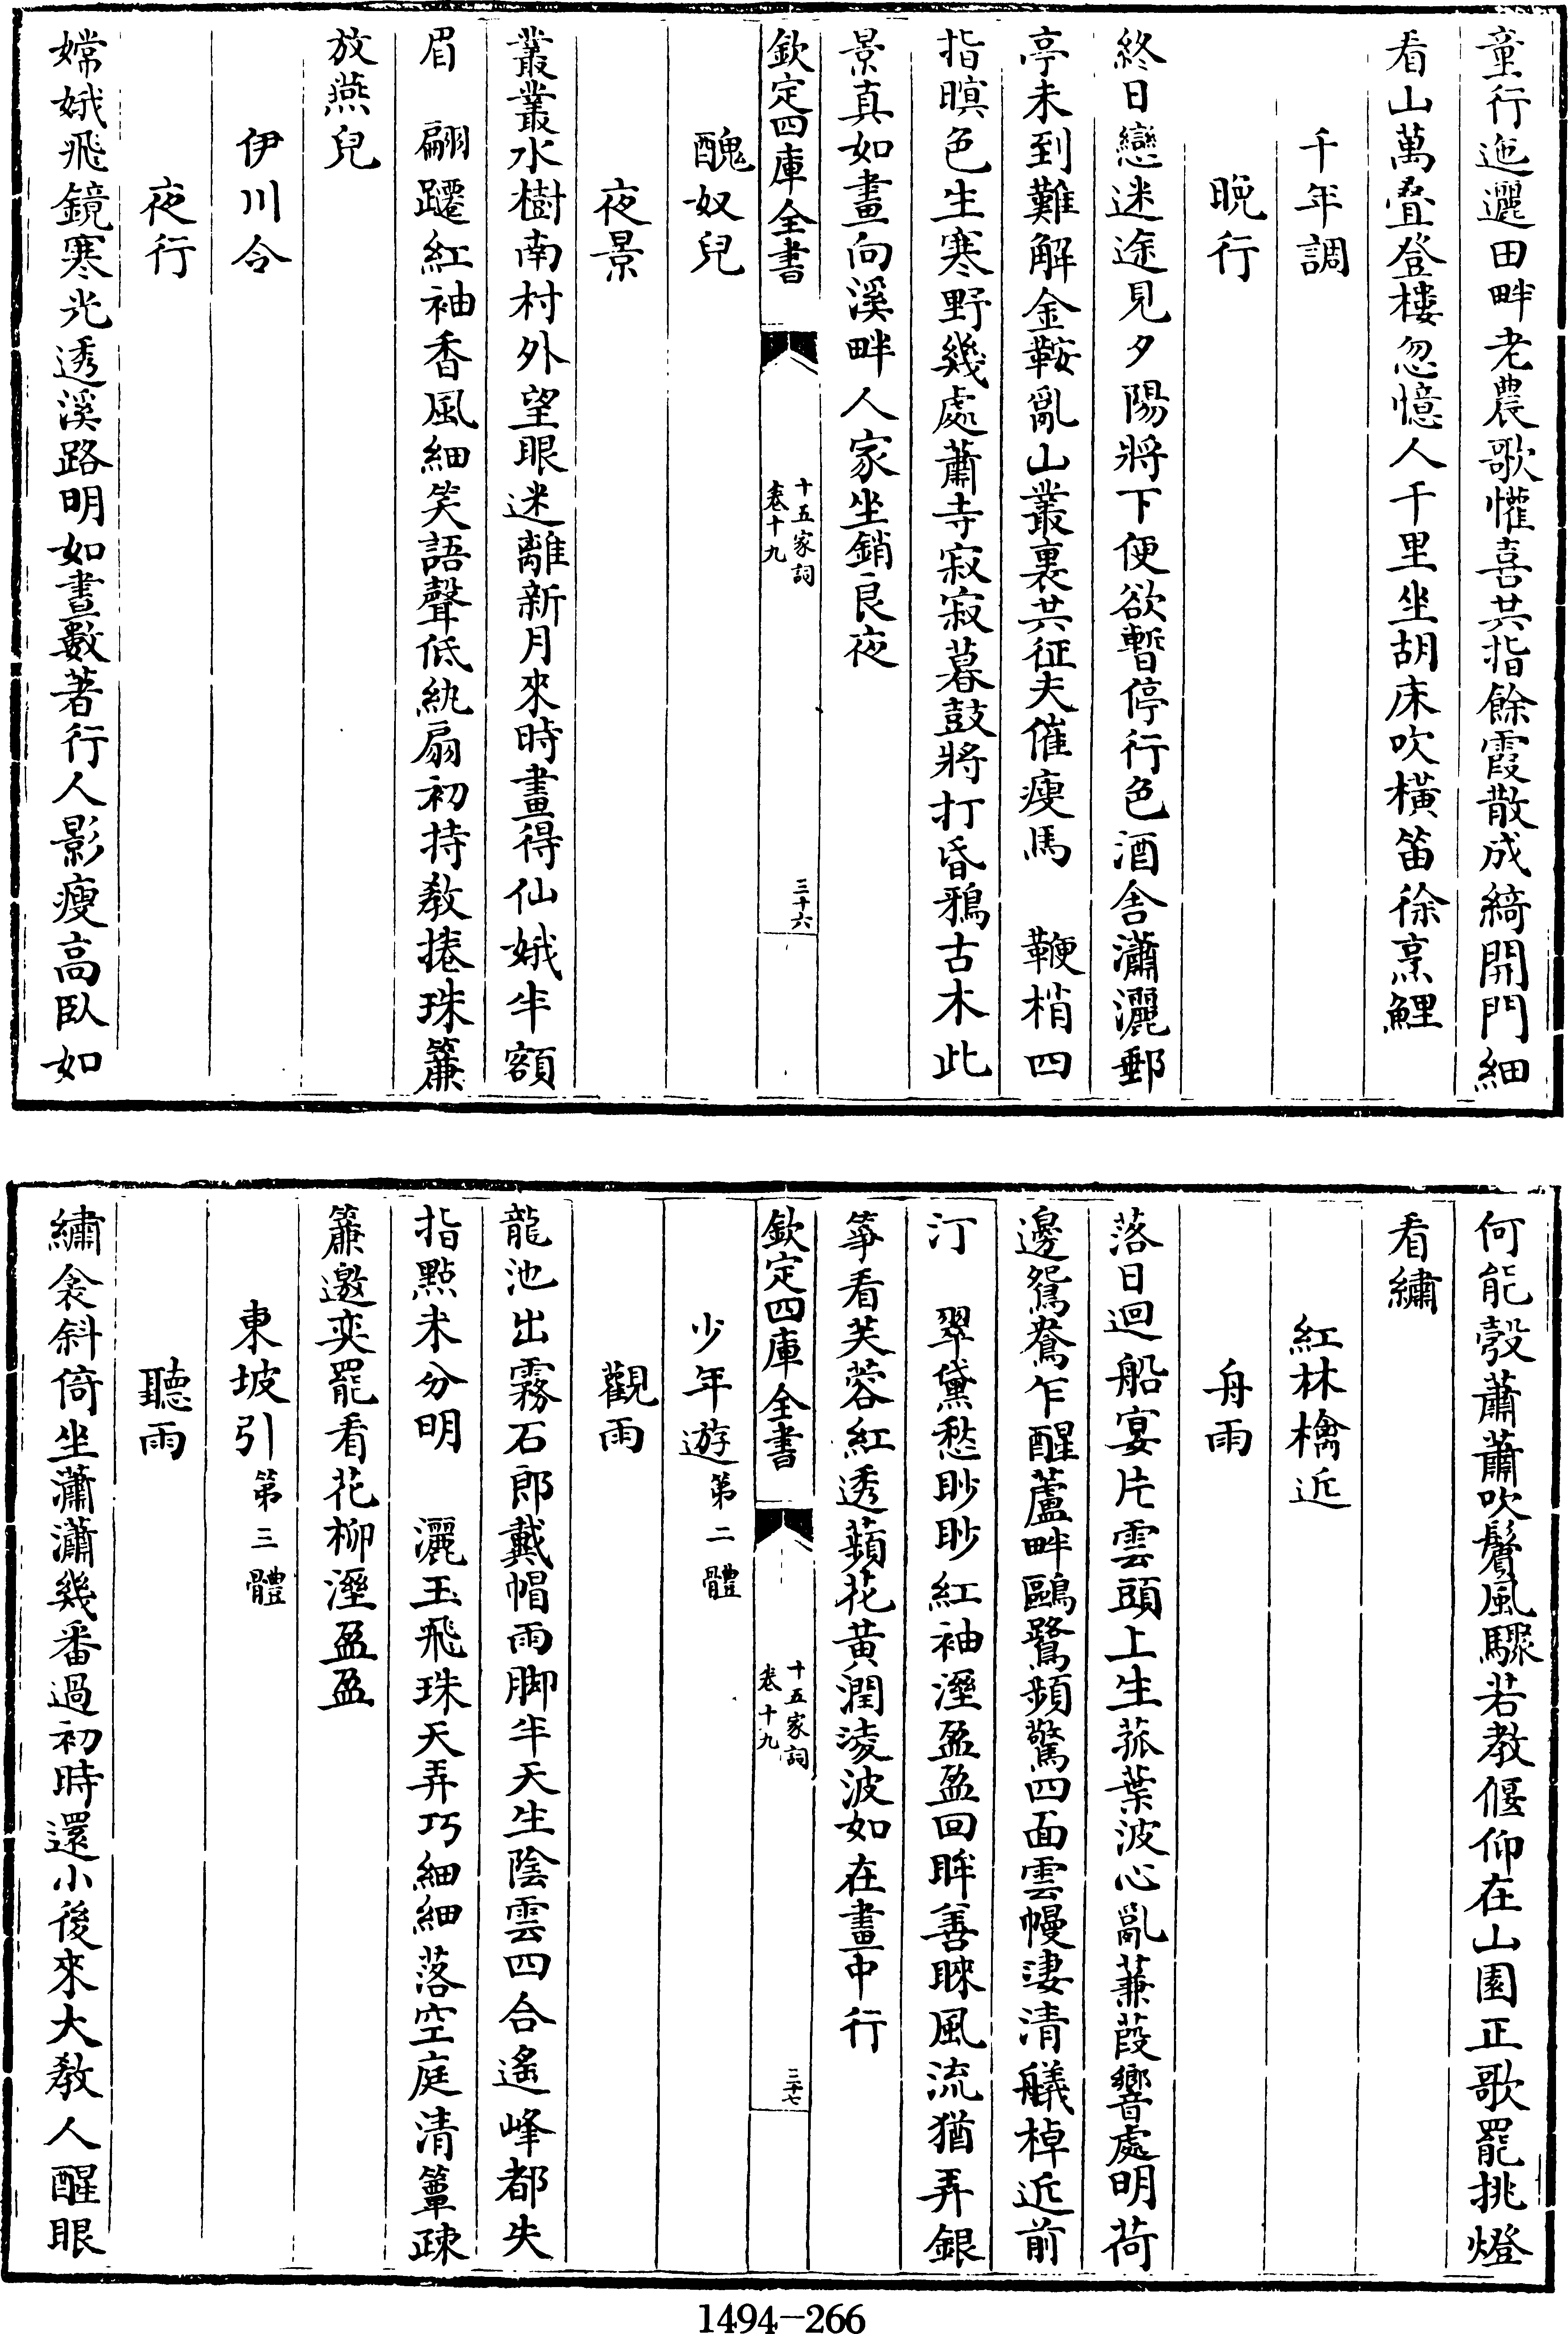 童行迤邐田畔老農歌懽喜共指餘霞散成綺開門細
看山萬疊登樓忽憶人千里坐胡床吹橫笛徐烹鯉
千年調
晚行
終日戀迷途見夕陽將下便欲暫停行色酒舍瀟灑郵
亭未到難解金鞍亂山叢裏共征夫催瘦馬　鞭梢四
指暝色生寒野幾處蕭寺寂寂暮鼓將打昏鴉古木此
景真如畫向溪畔人家坐銷良夜
欽定四庫全書
十五家詞
卷十九
三十六
醜奴兒
夜景
叢叢水樹南村外望眼迷離新月來時畫得仙娥半額
眉　翩躚紅袖香風細笑語聲低紈扇初持教捲珠簾
放燕兒
伊川令
夜行
嫦娥飛鏡寒光透溪路明如晝數著行人影瘦高臥如
何能彀蕭蕭吹鬢風驟若教偃仰在山園正歌罷挑燈
看繡
紅林檎近
舟雨
落日迴船宴片雲頭上生菰葉波心亂蒹葭響處明荷
邊鴛鴦乍醒蘆畔鷗鷺頻驚四面雲幔淒清艤棹近前
汀　翠黛愁眇眇紅袖溼盈盈回眸善睞風流猶弄銀
箏看芙蓉紅透蘋花黃潤淩波如在畫中行
欽定四庫全書
十五家詞
卷十九
三十七
少年遊第二體
觀雨
龍池出霧石郎戴帽雨脚半天生陰雲四合遙峰都失
指點未分明　灑玉飛珠天弄巧細細落空庭清簟疎
簾邀奕罷看花柳溼盈盈
東坡引第三體
聽雨
繡衾斜倚坐瀟瀟幾番過初時還小後來大教人醒眼
1494-266